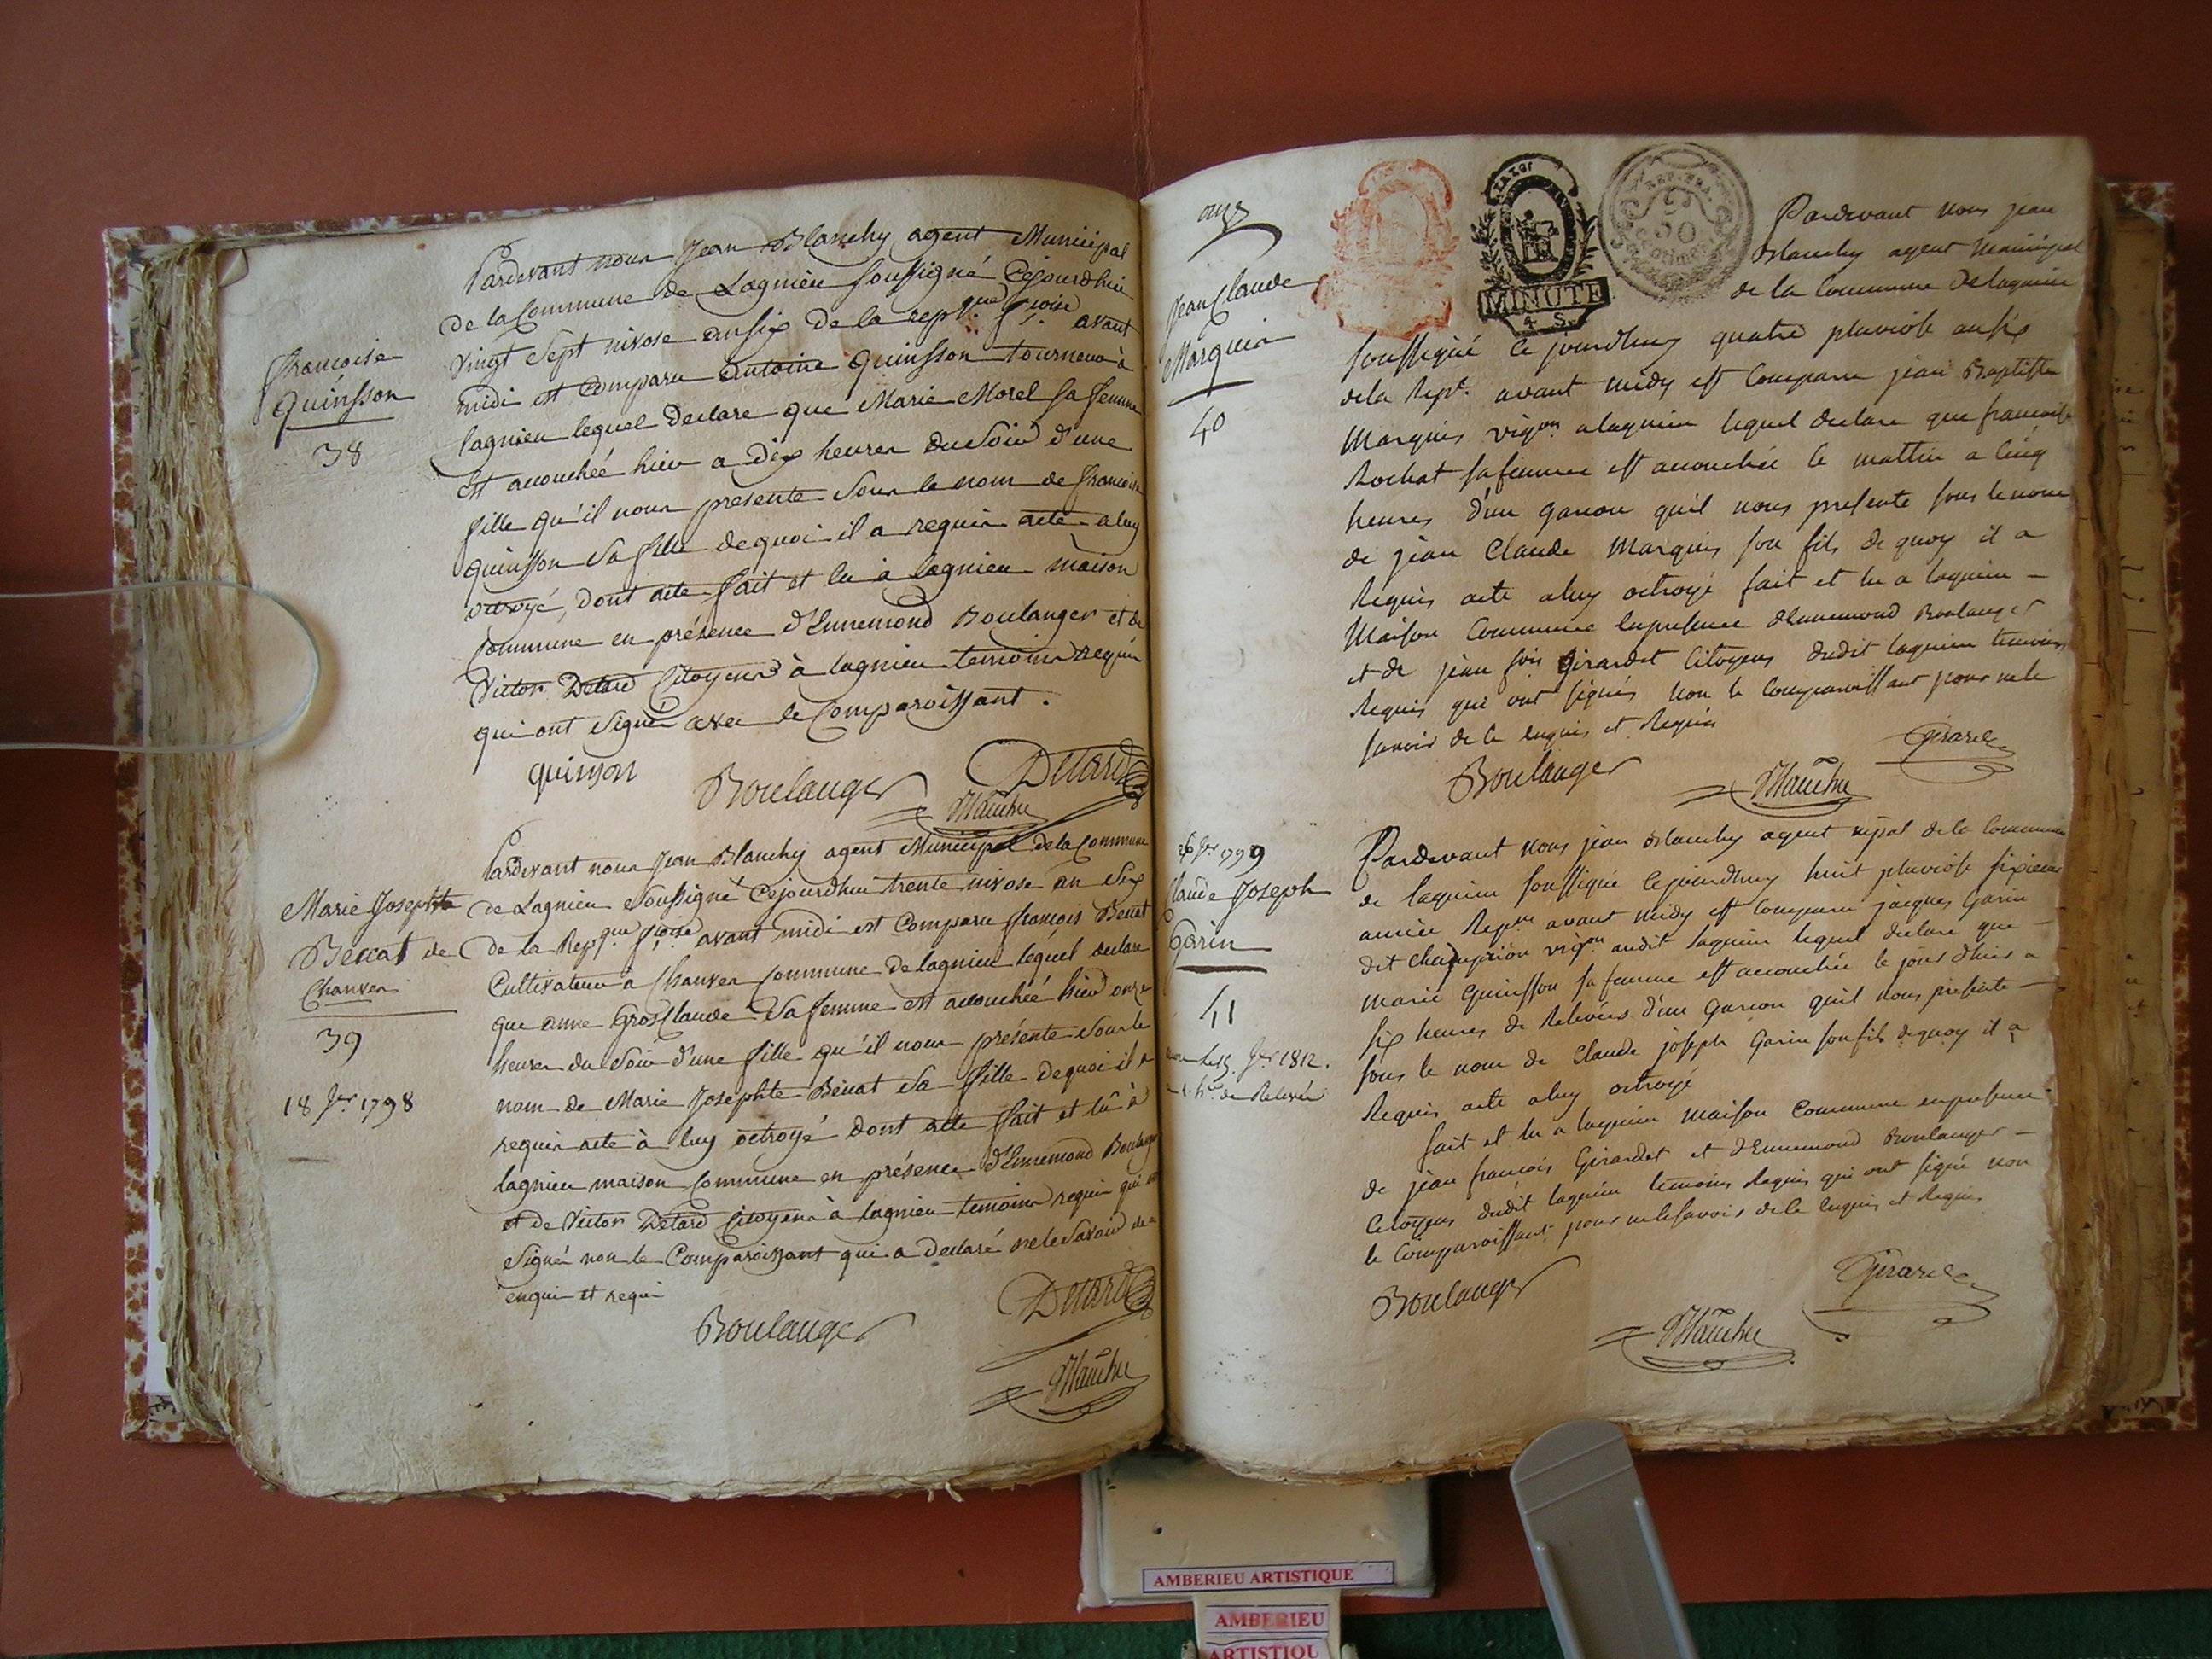 Françoise
Quinsson
38
Pardevant nous Jean Blanchy agent Municipal
de la Commune de Lagnieu Soussigné Cejourdhui
vingt Sept nivose an six de la rep.que f.çoise avant
midi est comparu antoine Quinsson tourneur à
lagnieu lequel declare que Marie Morel sa femme
est acouchée hier a dix heures du Soir d'une
fille qu'il nous présente Sous le nom de françoise
quinsson Sa fille dequoi il a requis acte a luy
octroyé, dont acte fait et lu à lagnieu maison
Commune en présence d'Ennemond Boulanger et de
Victor Detard Citoyens à lagnieu temoins requis
qui ont Signé avec le Comparoissant.
quinson
Boulanger
Detard
Blanchy
Marie Josephte
Benat de
Chanves
39
18 Jer 1798
Pardevant nous Jean Blanchy agent Municipal de la Commune
de Lagnieu Soussigné Cejourdhui trente nivose an Six
de la Rep.que f.çoise avant midi est Comparu françois Benat
Cultivateur à Chanves Commune de lagnieu lequel declare
que anne GrosClaude Sa femme est acouchée hier onze
heures du Soir d'une fille qu'il nous présente Sous le
nom de Marie Josephte Benat Sa fille dequoi il a
requis acte à luy octroyé dont acte fait et lû à
lagnieu maison Commune en présence d'Ennemond Boulanger
et de Victor Detard Citoyens à lagnieu temoins requis qui ont
Signé non le Comparoissant qui a declaré ne le Savoir de ce
enquis et requis
Boulanger
Detard
Blanchy
onze
Jean Claude
Marquis
40
REP. FRA.
50
centimes
MINUTE
4 S.
Pardevant nous jean
Blanchy agent Municipal
de la Commune Delagnieu
soussigné ce jourdhuy quatre pluviose an six
de la Repe. avant midy est Comparu jean Baptiste
Marquis vigon alagnieu lequel declare que francoise
Rochat sa femme est acouchée ce mattin a cinq
heures d'un garcon quil nous presente sous le nom
de jean Claude Marquis son fils de quoy il a
Requis acte aluy octroyé fait et lu a lagnieu —
Maison Commune en presence dEnnemond Boulanger
et de jean fois Girardet Citoyens dudit lagnieu temoins
Requis qui ont signés non le Comparoissant pour ne le
savoir de ce enquis et Requis
Boulanger
Blanchy
Girardet
26 Jer 1799
Claude Joseph
Garin
41
15. Jer 1812.
de Relevée
Pardevant nous jean Blanchy agent mpal de la Commune
de lagnieu soussigné cejourdhuy huit pluviose sixieme
année Repne avant midy est Comparu jacques Garin
dit Champion vigon audit lagnieu lequel declare que —
marie Quinsson sa femme est acouchée le jour dhier a
six heures de Relevées d'un Garcon quil nous presente —
sous le nom de Claude joseph Garin son fils dequoy il a
Requis acte aluy octroyé
fait et lu a lagnieu maison Commune en presence
de jean francois Girardet et dEnnemond Boulanger —
Citoyens dudit lagnieu temoins Requis qui ont signé non
le Comparoissant pour ne le savoir de ce Enquis et Requis
Boulanger
Blanchy
Girardet
AMBERIEU ARTISTIQUE
AMBERIEU
ARTISTIQU